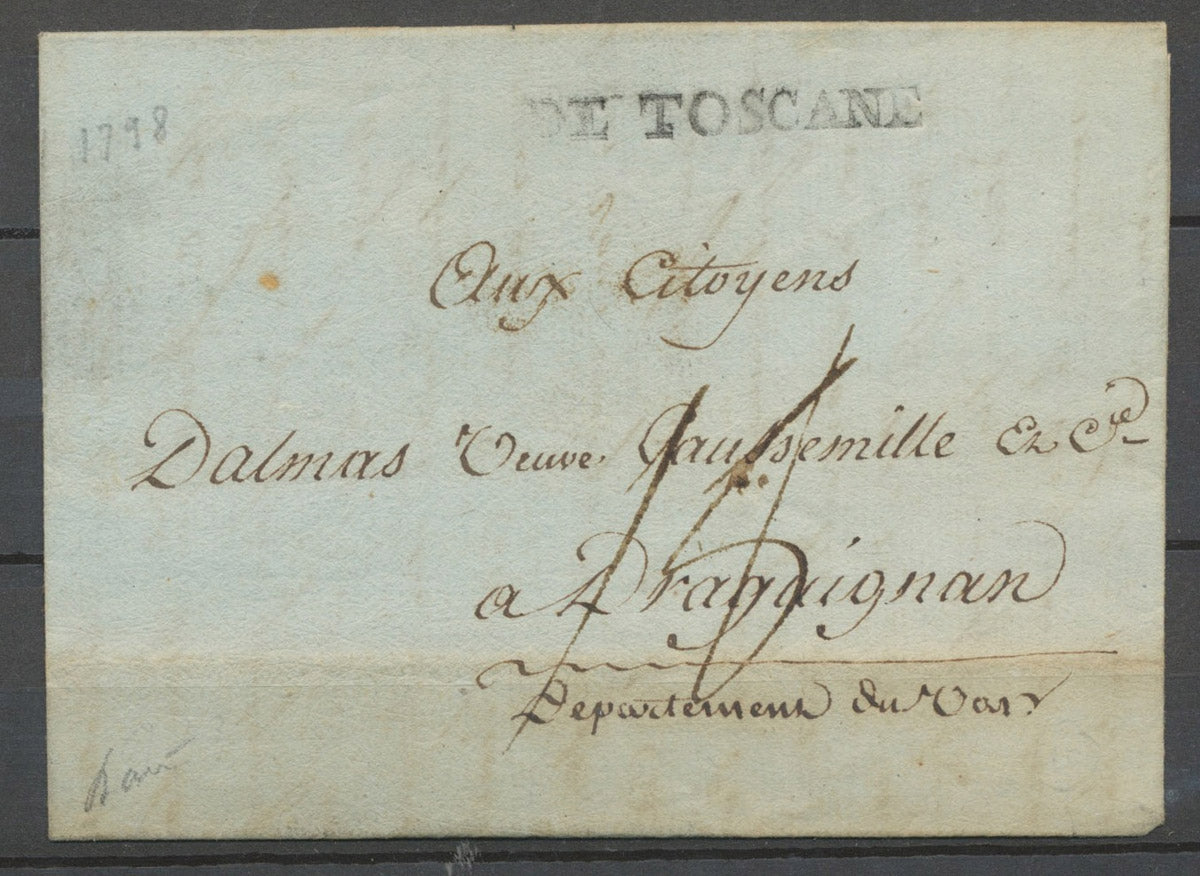 1798
DE TOSCANE
Aux Citoyens
Dalmas Veuve Jaussemille Et Cie
a Draguignan
Departement du Var
15